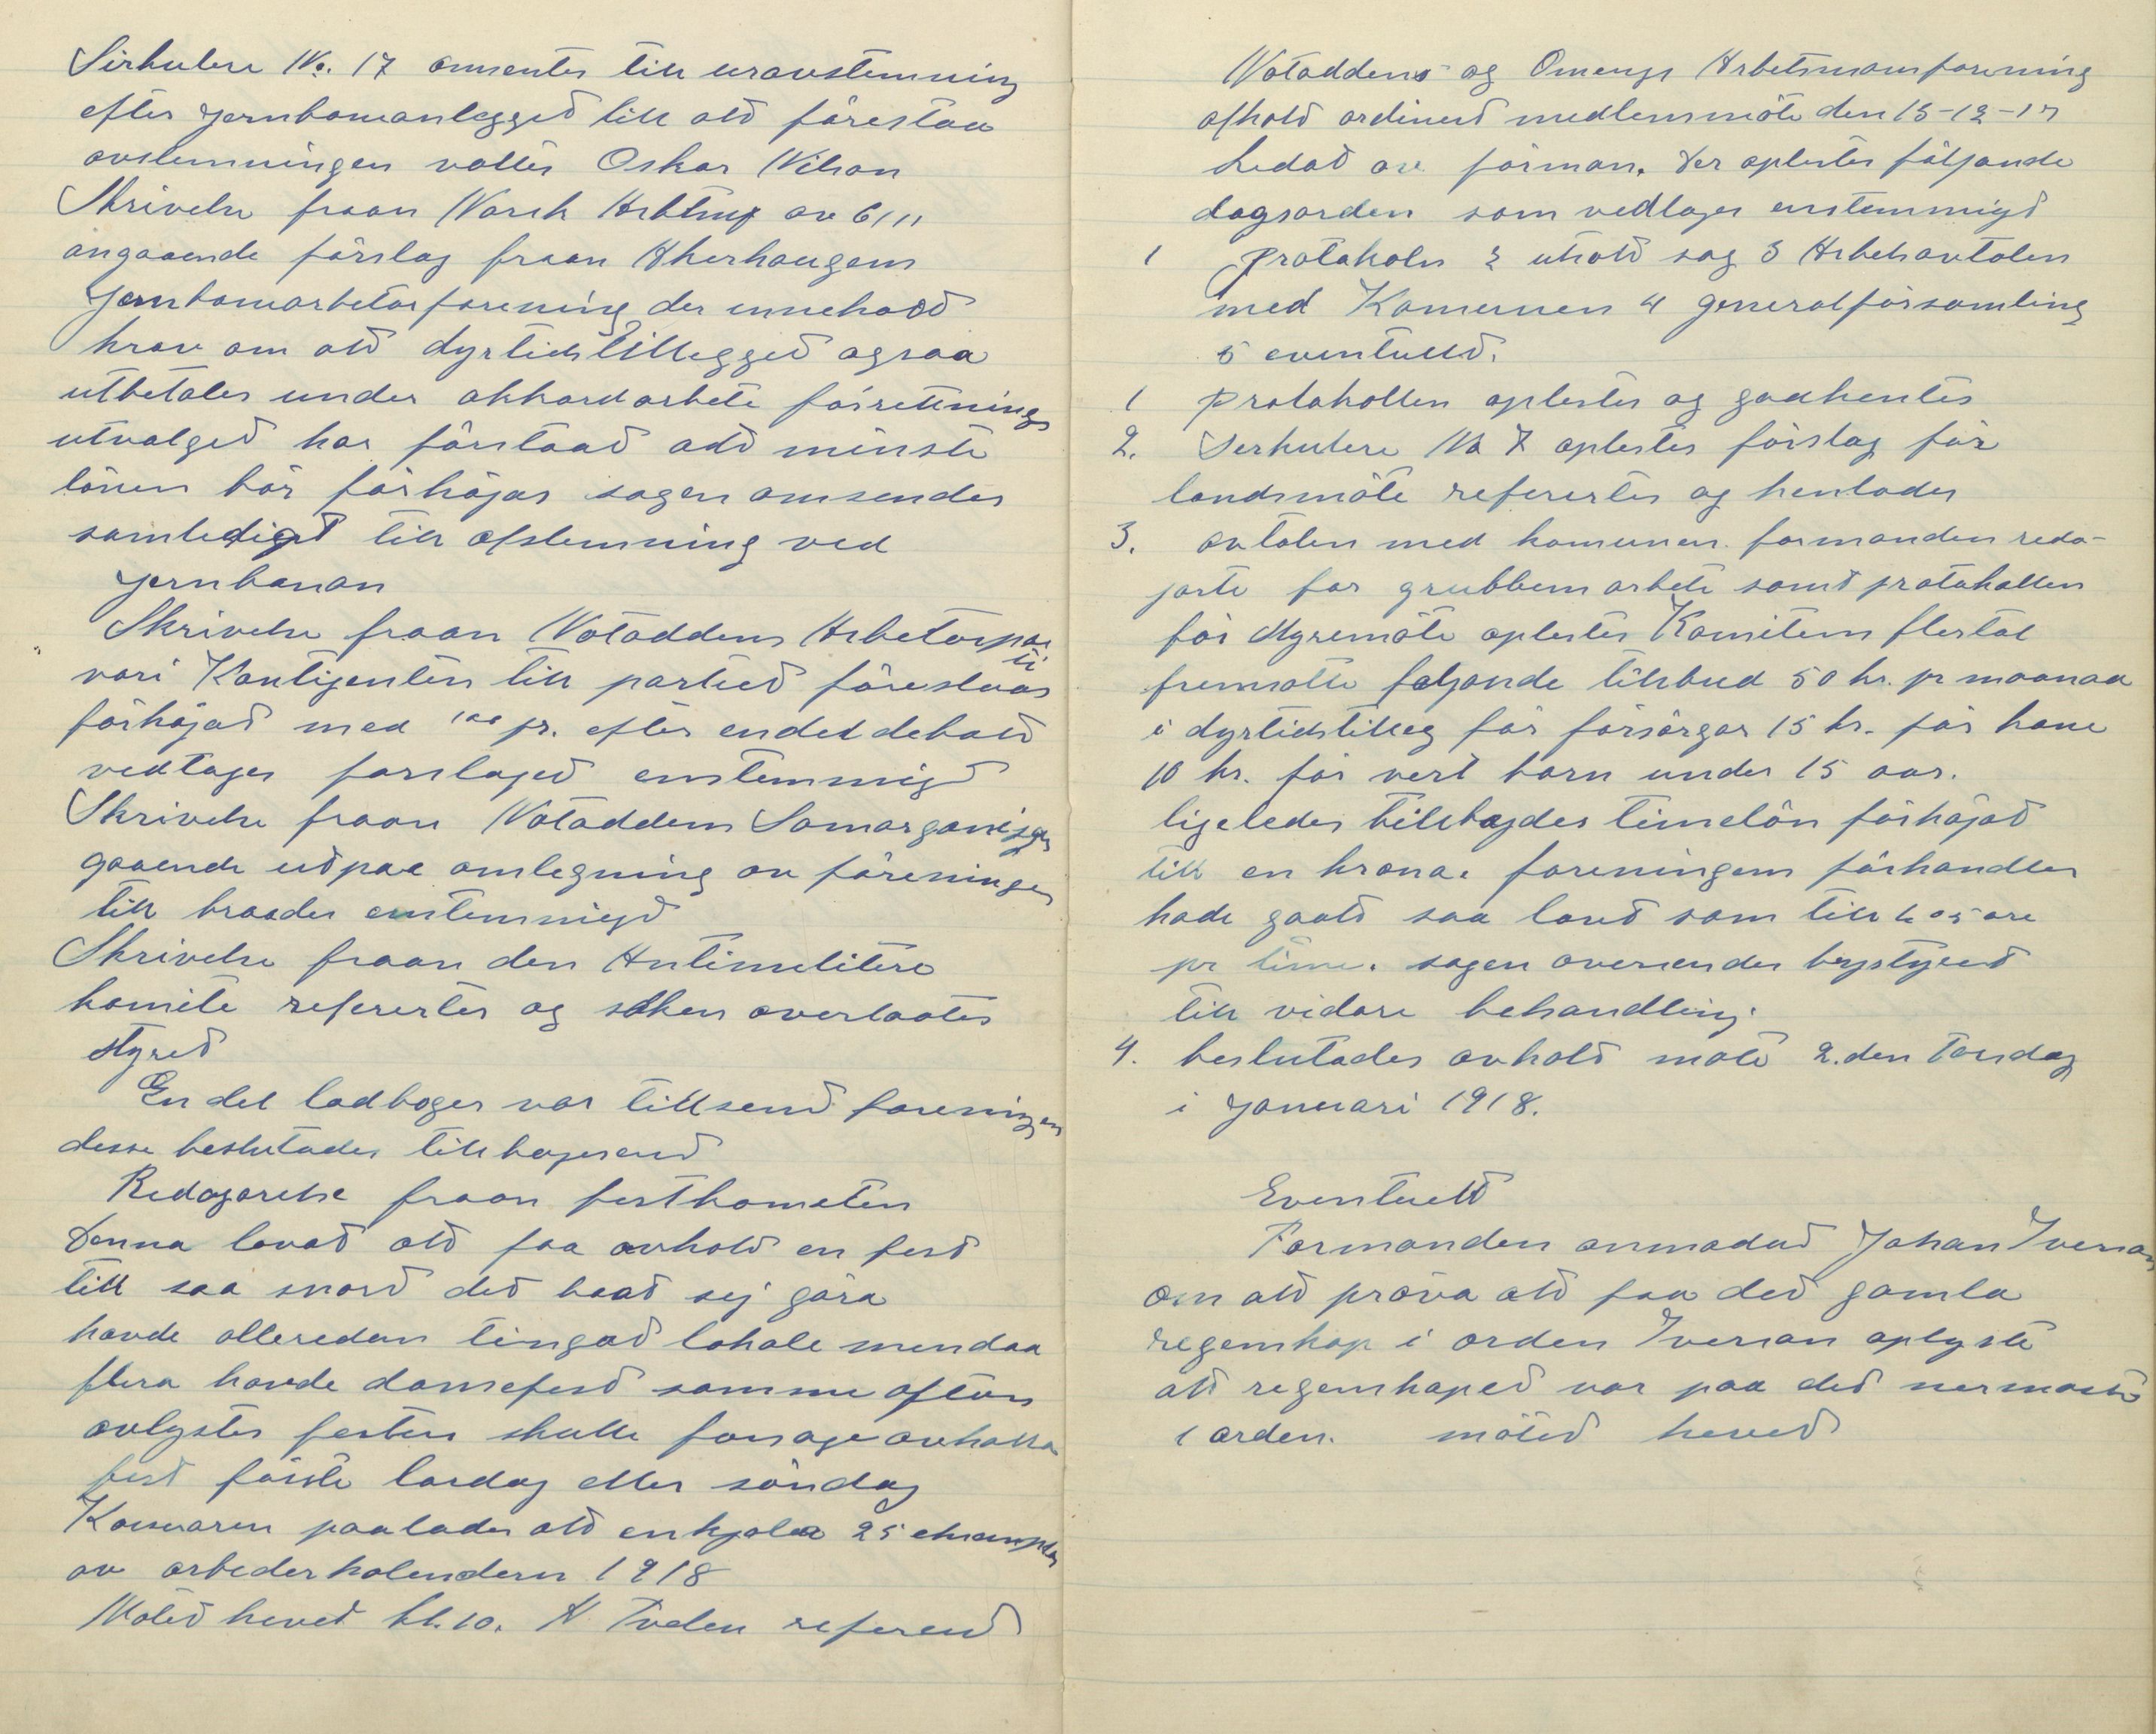 Sirkulere No. 17 omsentes till uravstemning
efter jernbaneanlegged till att förestaa
avstemningen valtes Oskar Nilson
Skrivelse fraan Norsk Arb av 6/11
angaaende förslag fraan Akerhaugens
Jernbanearbetarforening der innehadd
krav om att dyrtidstillegged agsaa
utbetales under akkord arbete förretnings
utvalged har förstaad att minste
lönen bör förhöjas sagen omsendes
samtedigt till afstemning ved
jernbanan
Skrivelse fraan Notoddens Arbetarpar
ti
vari Kontigenten till partied föreslaas
förhöjad med 100 pr. efter endel debatt
vedtages forslaged enstemmigd
Skrivelse fraan Notoddens Samorganisa
gaaende utpaa omlegning av föreningen
till braades enstemmigd
Skrivelse fraan den Antimelitere
komite referertes og saken overlaates
styred
En del ladboger var tillsend foreningen
desse beslutades tillbagesend
Redogorelse fraan festkometen
Denna lovad att faa avhold en fest
till saa snard det laad sej göra
havde alleredan tingad lokale mendaa
flera havde dansefest samme aften
avlystes festen skulle forsage avhalla
fest förste lordag eller söndag
Kasseraren paalades att enkjøbe 25 eksempler
av arbederkalendern 1918
Möted heved kl. 10. N Tveden referend
Notoddens og Omengs Arbetsmansforening
afhold ordinerd medlemsmöte den 15-12-17
Ledad av förman. Der oplestes följande
dagsorden som vedtages enstemmigd
1 Protokoln 2 utsatt sag 3 Arbetsavtalen
med Komunen 4 generalförsamling
5 eventuelt.
1 Protokollen oplestes og godkentes
2. Serkulere No 7 oplestes förslag för
landsmöte referertes og henlades
3. avtalen med komunen. formanden redo-
jorte for grubbens arbete samt protokollen
för Myremöte oplestes Komitens flertal
fremsatte følgande tilbud 50 kr. pr maanad
i dyrtidstilleg för försörgar 15 kr. för kone
10 kr. för vert barn under 15 aar.
ligeledes tilbøjdes timelön förhöjad
till en krona. foreningens förhandler
hade gaatt saa langt som till 1,05 øre
pr time. sagen oversendes bystyred
till vidare behandling.
4. beslutades avhold möte 2.den Torsdag
i Januari 1918.
Eventuelt
Formanden anmodad Johan Iverson
om att pröva att faa ded gamla
regenskap i orden Iverson oplyste
att regenskaped var paa ded nermaste
i orden. möted heved